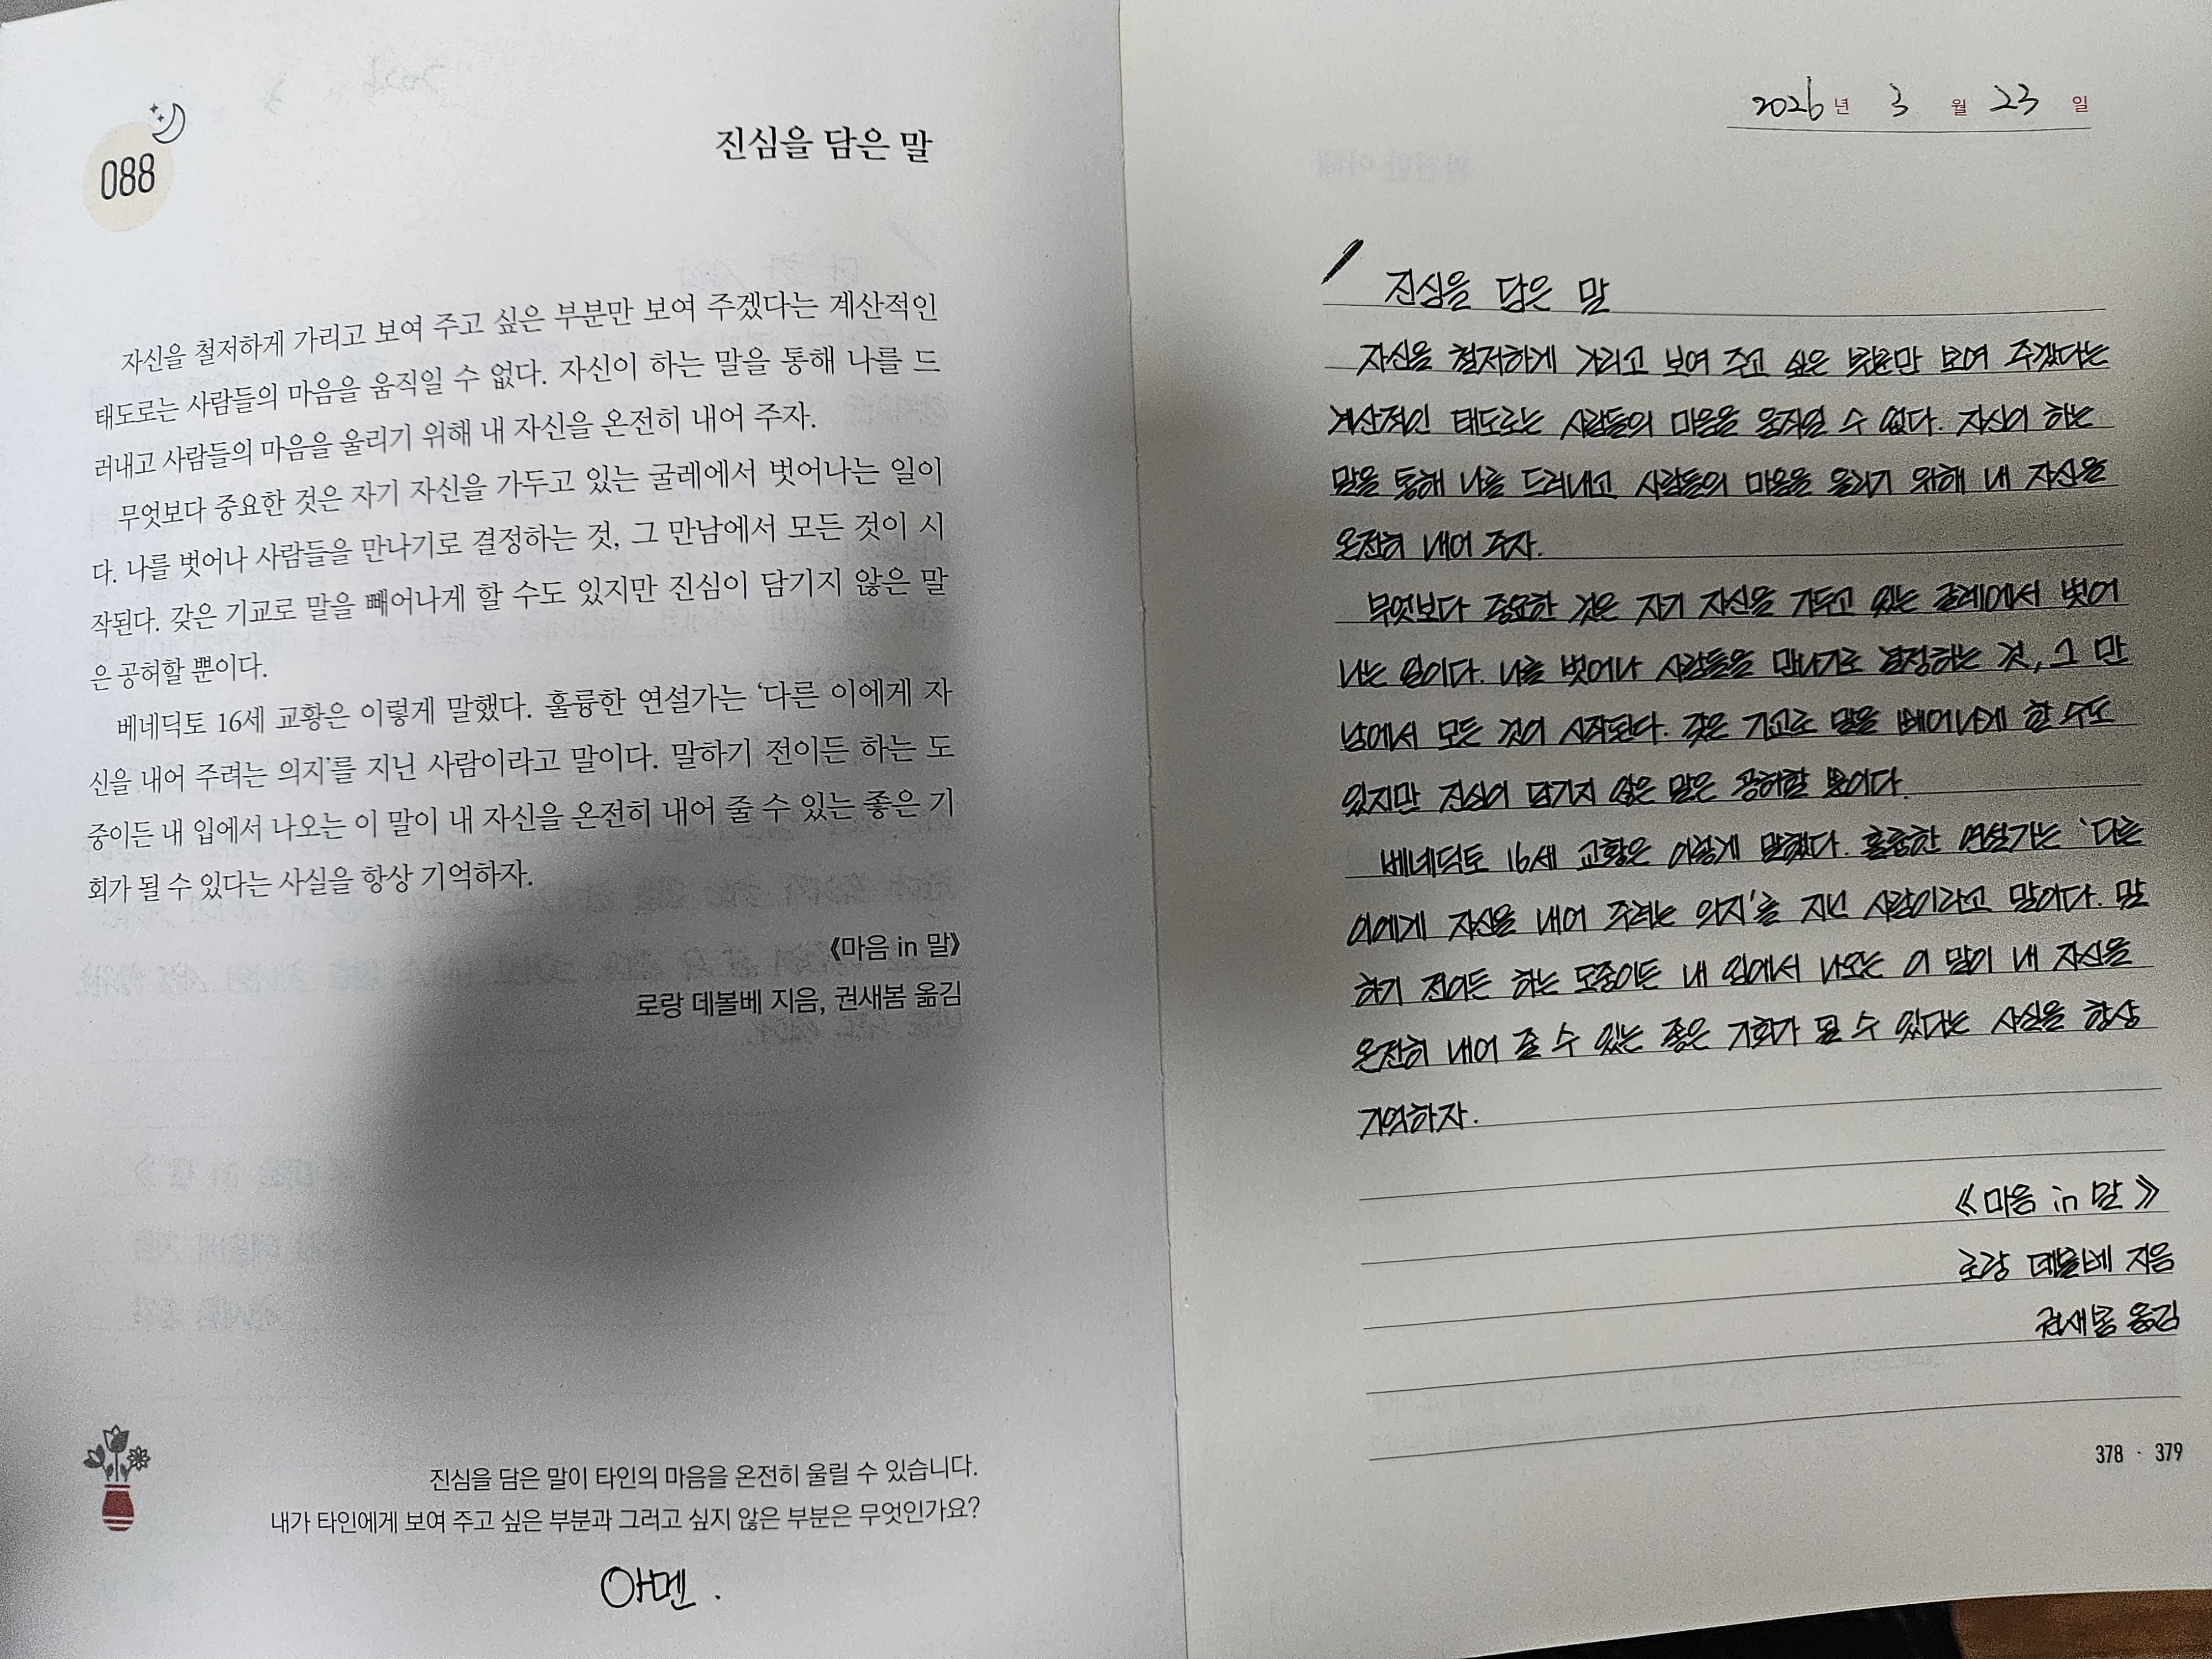 088
진심을 담은 말
자신을 철저하게 가리고 보여 주고 싶은 부분만 보여 주겠다는 계산적인
태도로는 사람들의 마음을 움직일 수 없다. 자신이 하는 말을 통해 나를 드
러내고 사람들의 마음을 울리기 위해 내 자신을 온전히 내어 주자.
무엇보다 중요한 것은 자기 자신을 가두고 있는 굴레에서 벗어나는 일이
다. 나를 벗어나 사람들을 만나기로 결정하는 것, 그 만남에서 모든 것이 시
작된다. 갖은 기교로 말을 빼어나게 할 수도 있지만 진심이 담기지 않은 말
은 공허할 뿐이다.
베네딕토 16세 교황은 이렇게 말했다. 훌륭한 연설가는 ‘다른 이에게 자
신을 내어 주려는 의지’를 지닌 사람이라고 말이다. 말하기 전이든 하는 도
중이든 내 입에서 나오는 이 말이 내 자신을 온전히 내어 줄 수 있는 좋은 기
회가 될 수 있다는 사실을 항상 기억하자.
《마음 in 말》
로랑 데볼베 지음, 권새봄 옮김
진심을 담은 말이 타인의 마음을 온전히 울릴 수 있습니다.
내가 타인에게 보여 주고 싶은 부분과 그러고 싶지 않은 부분은 무엇인가요?
아멘.
2026년 3월 23일
진심을 담은 말
자신을 철저하게 가리고 보여 주고 싶은 부분만 보여 주겠다는
계산적인 태도로는 사람들의 마음을 움직일 수 없다. 자신이 하는
말을 통해 나를 드러내고 사람들의 마음을 울리기 위해 내 자신을
온전히 내어 주자.
무엇보다 중요한 것은 자기 자신을 가두고 있는 굴레에서 벗어
나는 일이다. 나를 벗어나 사람들을 만나기로 결정하는 것, 그 만
남에서 모든 것이 시작된다. 갖은 기교로 말을 빼어나게 할 수도
있지만 진심이 담기지 않은 말은 공허할 뿐이다.
베네딕토 16세 교황은 이렇게 말했다. 훌륭한 연설가는 '다른
이에게 자신을 내어 주려는 의지'를 지닌 사람이라고 말이다. 말
하기 전이든 하는 도중이든 내 입에서 나오는 이 말이 내 자신을
온전히 내어 줄 수 있는 좋은 기회가 될 수 있다는 사실을 항상
기억하자.
《마음 in 말》
로랑 데볼베 지음
권새봄 옮김
378 · 379